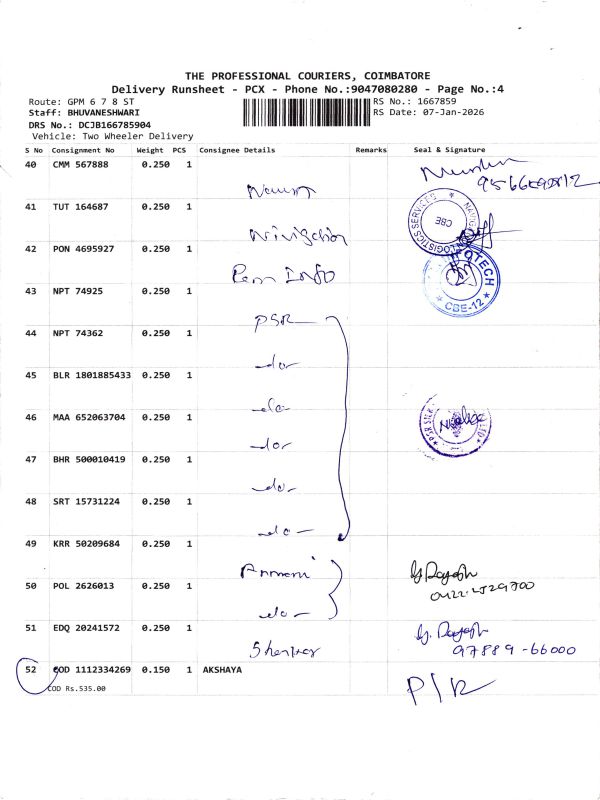 THE PROFESSIONAL COURIERS, COIMBATORE
Delivery Runsheet - PCX - Phone No.:9047080280 - Page No.:4
Route: GPM 6 7 8 ST
RS No.: 1667859
Staff: BHUVANESHWARI
RS Date: 07-Jan-2026
DRS No.: DCJB166785904
Vehicle: Two Wheeler Delivery
S No Consignment No Weight PCS Consignee Details Remarks Seal & Signature
40 CMM 567888 0.250 1
41 TUT 164687 0.250 1
LOGISTICS SERVICES CBE
42 PON 4695927 0.250 1
Pem Info
CBE-12
43 NPT 74925 0.250 1
PSR
44 NPT 74362 0.250 1
-do-
45 BLR 1801885433 0.250 1
-do-
46 MAA 652063704 0.250 1
-do-
PSR SILK
47 BHR 500010419 0.250 1
-do-
48 SRT 15731224 0.250 1
-do-
49 KRR 50209684 0.250 1
50 POL 2626013 0.250 1
-do-
51 EDQ 20241572 0.250 1
97889-66000
52 COD 1112334269 0.150 1 AKSHAYA
COD Rs.535.00
P/R